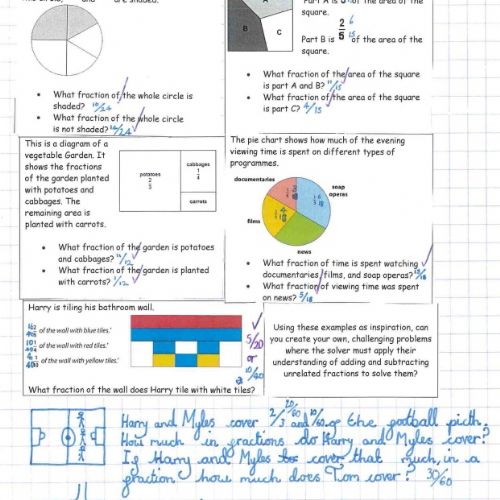 are shaded.
What fraction of the whole circle is
shaded? 10/24
What fraction of the whole circle
is not shaded? 14/24
A
B
C
Part A is of the area of the
square.
Part B is 2/5 of the area of the
square.
What fraction of the area of the square
is part A and B? 11/15
What fraction of the area of the square
is part C? 4/15
This is a diagram of a
vegetable Garden. It
shows the fractions
of the garden planted
with potatoes and
cabbages. The
remaining area is
planted with carrots.
potatoes
cabbages
carrots
What fraction of the garden is potatoes
and cabbages?
What fraction of the garden is planted
with carrots? 1/12
The pie chart shows how much of the evening
viewing time is spent on different types of
programmes.
documentaries
soap
operas
films
news
What fraction of time is spent watching
documentaries, films, and soap operas? 13/18
What fraction of viewing time was spent
on news? 5/18
Harry is tiling his bathroom wall.
of the wall with blue tiles.'
of the wall with red tiles.'
of the wall with yellow tiles.'
What fraction of the wall does Harry tile with white tiles?
5/20
or
10/40
Using these examples as inspiration, can
you create your own, challenging problems
where the solver must apply their
understanding of adding and subtracting
unrelated fractions to solve them?
Harry and Myles cover 2/3 and 10/60 of the football pitch.
How much in fractions do Harry and Myles cover?
If Harry and Myles cover that much, in a
fraction how much does Tom cover? 30/60